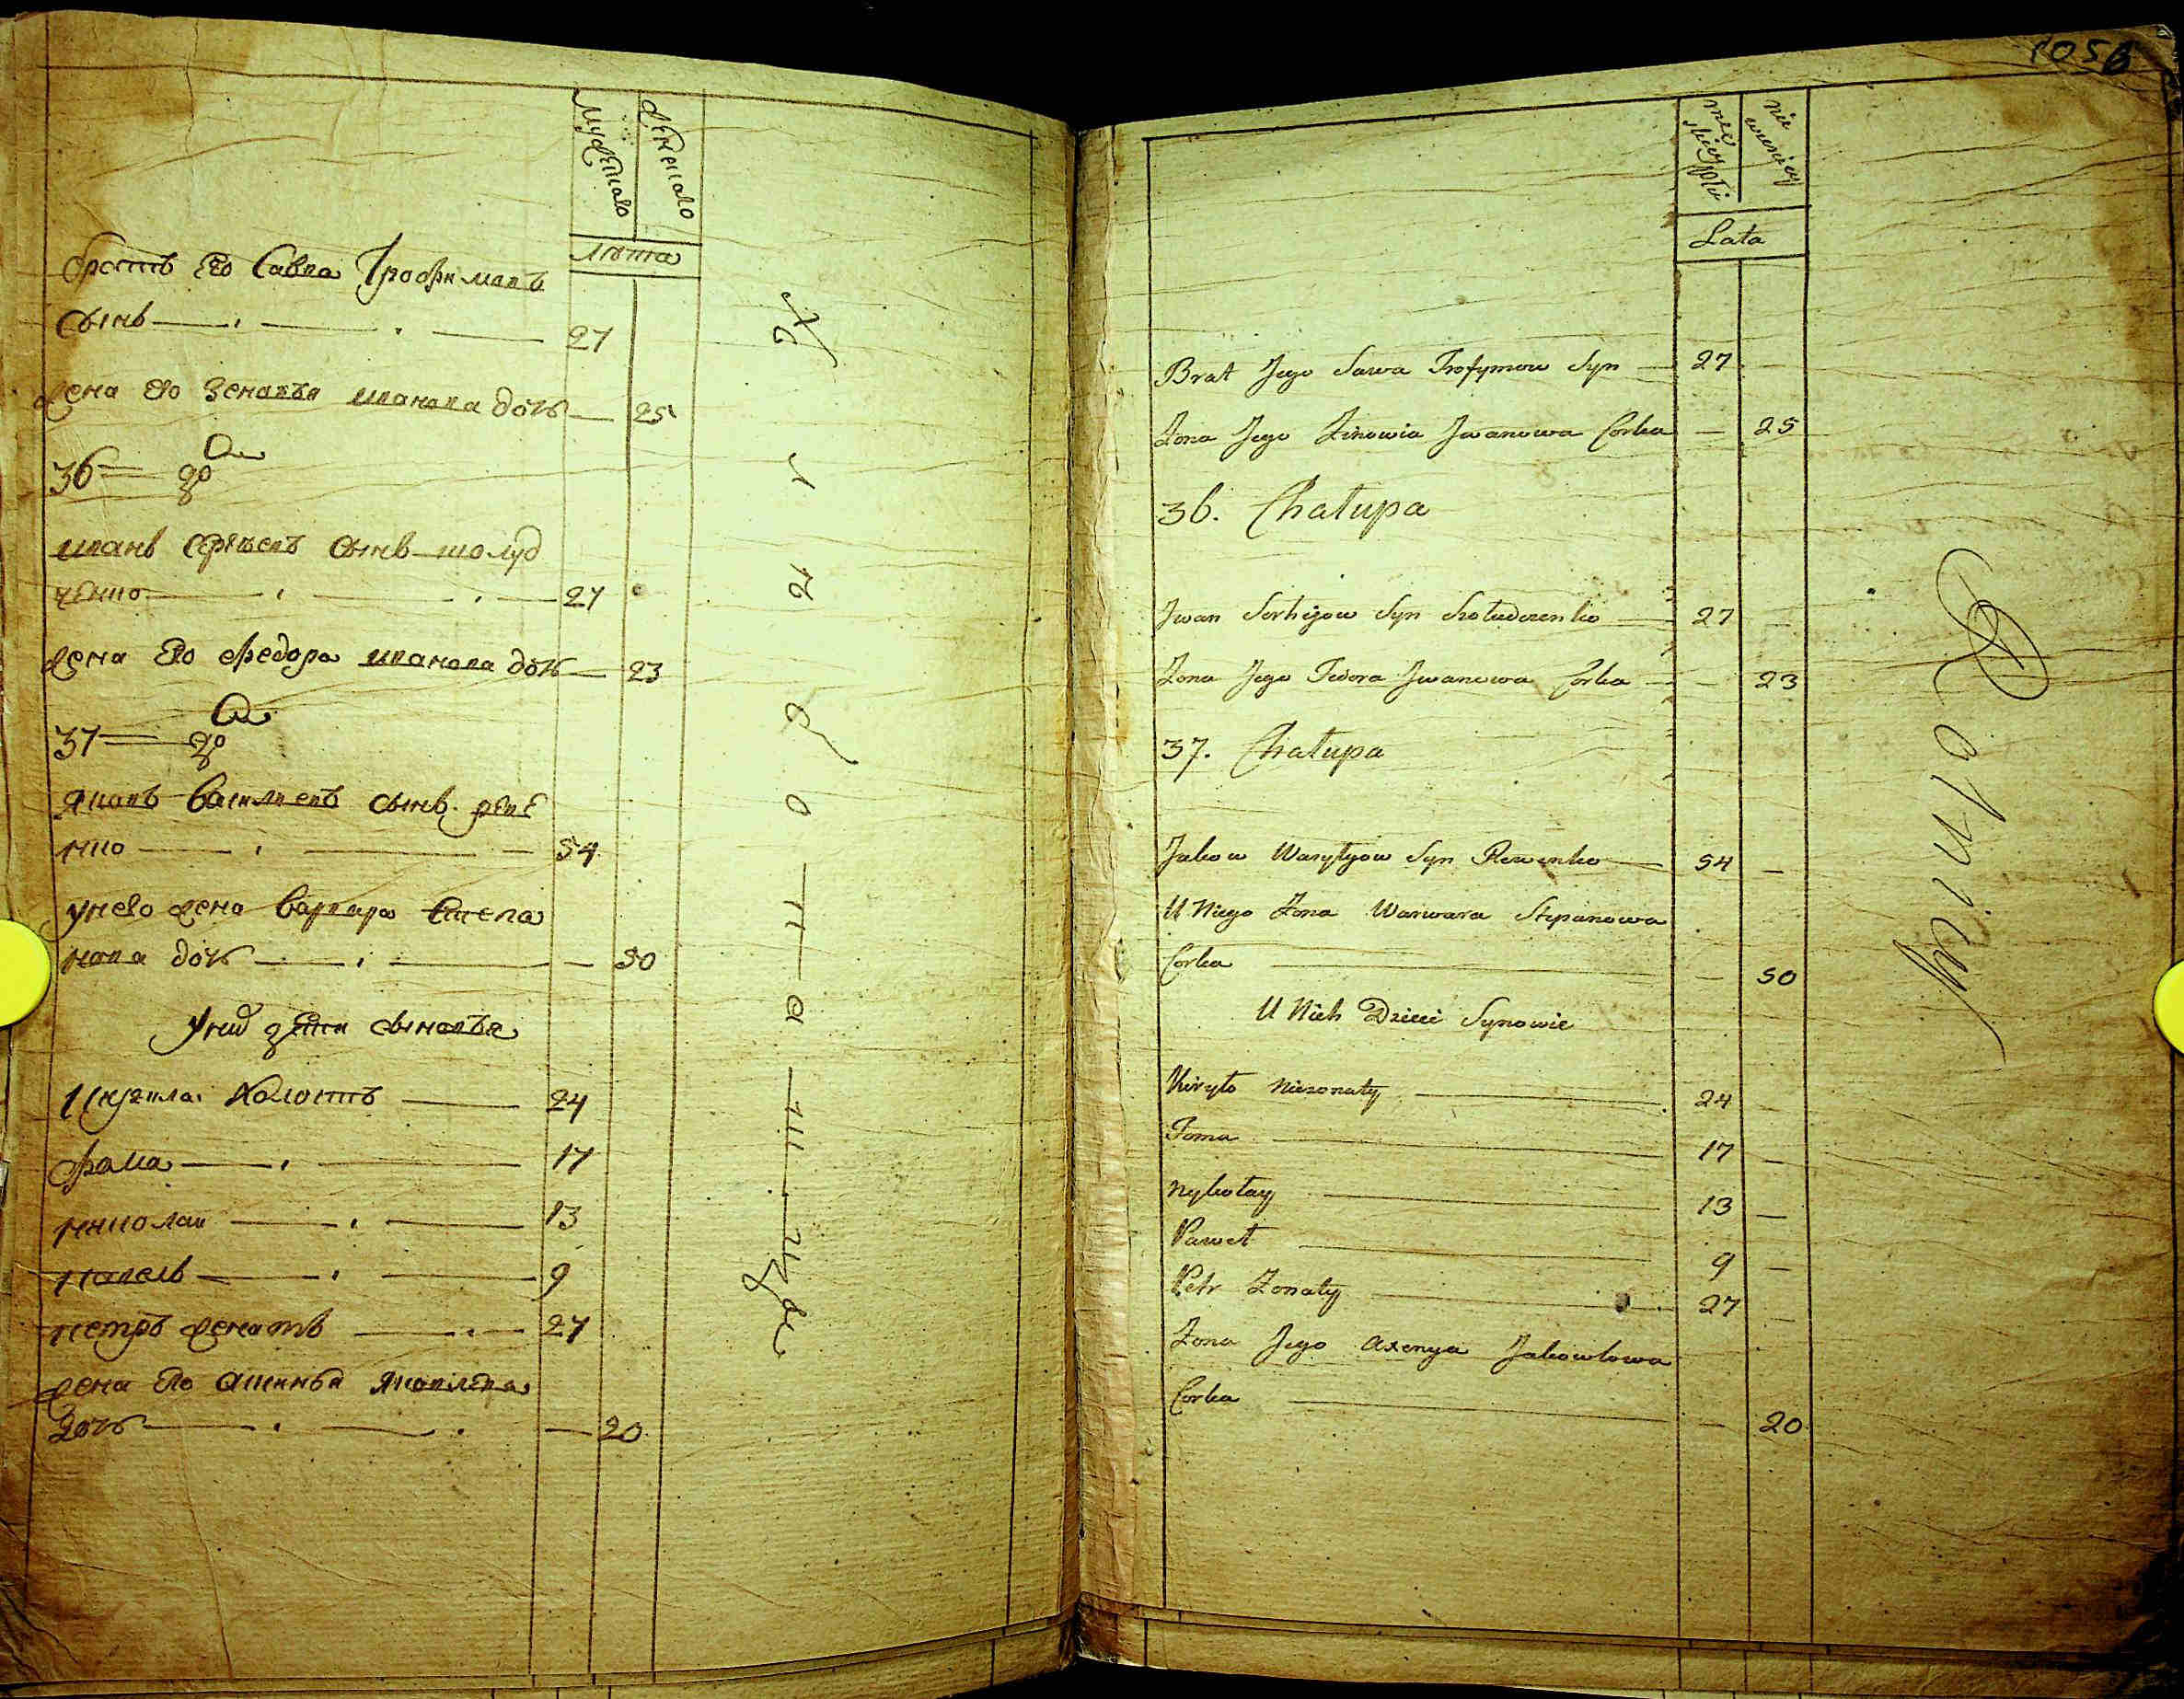 Мужеска
Женска
Лѣта
братъ его Савва Трофимовъ
сынъ 27
жена его Зеновья иванова дочь 25
36
иванъ Сергѣевъ сынъ шолуд
ченко 27
жена его Федора иванова дочь 23
37
Яковъ Василиевъ сынъ реве
нко 54
у него жена Варвара Степа
нова дочь 50
у них дети сыновья
Кирила холостъ 24
Фома 17
николаи 13
павелъ 9
петръ женатъ 27
жена его Аксинья Яковлева
дочь 20
105
męskiey płci
niewieściey
Lata
Brat Jego Sawa Trofymow Syn 27
Żona Jego Zinowia Jwanowa Corka 25
36. Chałupa
Jwan Serhijow Syn Szołudczenko 27
Żona Jego Fedora Jwanowa Corka 23
37. Chałupa
Jakow Wasylyow Syn Rewenko 54
U Niego Żona Warwara Stepanowa
Corka 50
U Nich Dzieci Synowie
Kiryło Nieżonaty 24
Foma 17
Nykołay 13
Paweł 9
Petr Żonaty 27
Żona Jego Axenya Jakowlowa
Corka 20